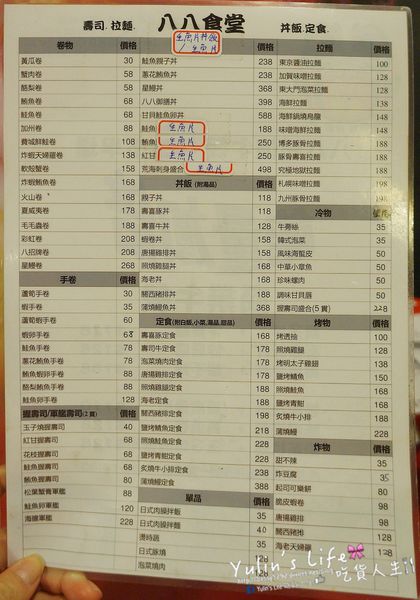 壽司.拉麵. 八八食堂 丼飯.定食.
卷物 價格
黃瓜卷 30
蟹肉卷 58
酪梨卷 58
鮪魚卷 68
加州卷 88
費城鮮鮭卷 128
炸蝦天婦羅卷 138
軟殼蟹卷 158
炸蝦鮪魚卷 168
火山卷 168
夏威夷卷 178
毛毛蟲卷 188
彩虹卷 208
八招牌卷 208
星鰻卷 268
手卷 價格
蘆筍手卷 30
蝦手卷 35
蘆筍蝦手卷 60
蝦卵手卷 68
鮭魚手卷 78
蔥花鮪魚手卷 78
鮪魚蝦卵手卷 88
酪梨鮪魚手卷 88
鮭魚卵手卷 128
握壽司/軍艦壽司(2貫) 價格
玉子燒握壽司 40
紅甘握壽司 68
花枝握壽司 68
鮭魚握壽司 68
鮪魚握壽司 80
松葉蟹膏軍艦 88
鮭魚卵軍艦 128
海膽軍艦 228
生魚片丼飯
/生魚片 價格
鮭魚親子丼 238
蔥花鮪魚丼 288
星鰻丼 368
八八御膳丼 398
甘貝鮭魚卵丼 588
鮭魚 生魚片 188
鮪魚 生魚片 250
紅甘 生魚片 250
荒海刺身盛合 生魚片 498
丼飯 (附湯品) 價格
親子丼 118
壽喜豚丼 118
壽喜牛丼 128
蝦卷丼 128
唐揚雞排丼 158
照燒雞腿丼 158
海老丼 158
關西豬排丼 158
蒲燒鰻魚丼 368
定食 (附白飯,小菜,湯品,甜品) 價格
壽喜豚定食 178
壽喜牛定食 188
泡菜燒肉定食 188
唐揚雞排定食 218
照燒雞腿定食 218
海老定食 218
關西豬排定食 218
鹽烤鯖魚定食 228
照燒鮭魚定食 228
鹽烤青甘定食 228
炙燒牛小排定食 268
蒲燒鰻定食 388
單品 價格
日式肉燥拌飯 35
日式肉燥拌麵
燙時蔬
日式豚燒
泡菜燒肉
拉麵 價格
東京醬油拉麵 100
加賀味噌拉麵 128
東大門泡菜拉麵 128
海鮮拉麵 138
海鮮鍋燒烏龍 148
味噌海鮮拉麵 188
博多豚骨拉麵 188
豚骨黃喜拉麵 188
究極地獄拉麵 198
札幌味噌拉麵 198
九州豚骨拉麵 198
冷物 價格
牛蒡絲 35
韓式泡菜 35
風味海蜇皮 50
中華小章魚 50
珍味螺肉 50
調味甘貝唇 50
握壽司盛合(5貫) 228
烤物 價格
烤透抽 100
照燒雞腿 128
烤明太子雞翅 138
鹽烤鯖魚 150
照燒鮭魚 168
鹽烤青甘 168
炙燒牛小排 198
蒲燒鰻 328
炸物 價格
甜不辣 35
炸豆腐 35
起司可樂餅 80
脆皮蝦卷
唐揚雞排
關西豬排
海老天婦羅 128
Yulin's Life
吃貨人生!!